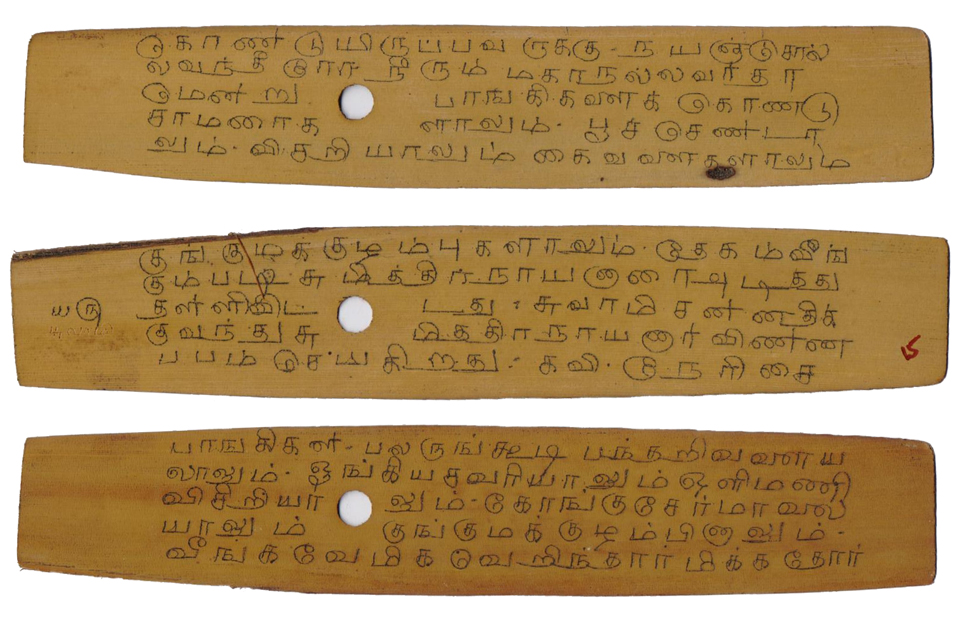 கொண்டுயிருப்பவருக்கு - நய
நீரும் மகாநல்லவர்தா
மென்று பாங்கிகளைக் கொண்டு
ளாலும் - பூச் செண்டா
லும் - விசறியாலும் கைவளைகளாலும்
குங்குமக்குழம்புகளாலும் - தேகம்வீங்
கும்படி சுமித்திரநாயனாரை
யரு தள்ளிவிட்டது : சுவாமி சன்னதிக்
குவந்து சுமித்திரநாயனார் விண்ண
ப்பம் செய்கிறது - கவி - நேரிசை
பாங்கிகள் - பலருங்கூடி
லாலும் - ஓங்கியகவரியாலும் ஒளிமணி
விசிறியாலும் - கோங்குசேர்மாலை
யாலும் குங்குமக்குழம்பினாலும் -
வீங்கவேமிகவெறிந்தார் மிக்கதோர்